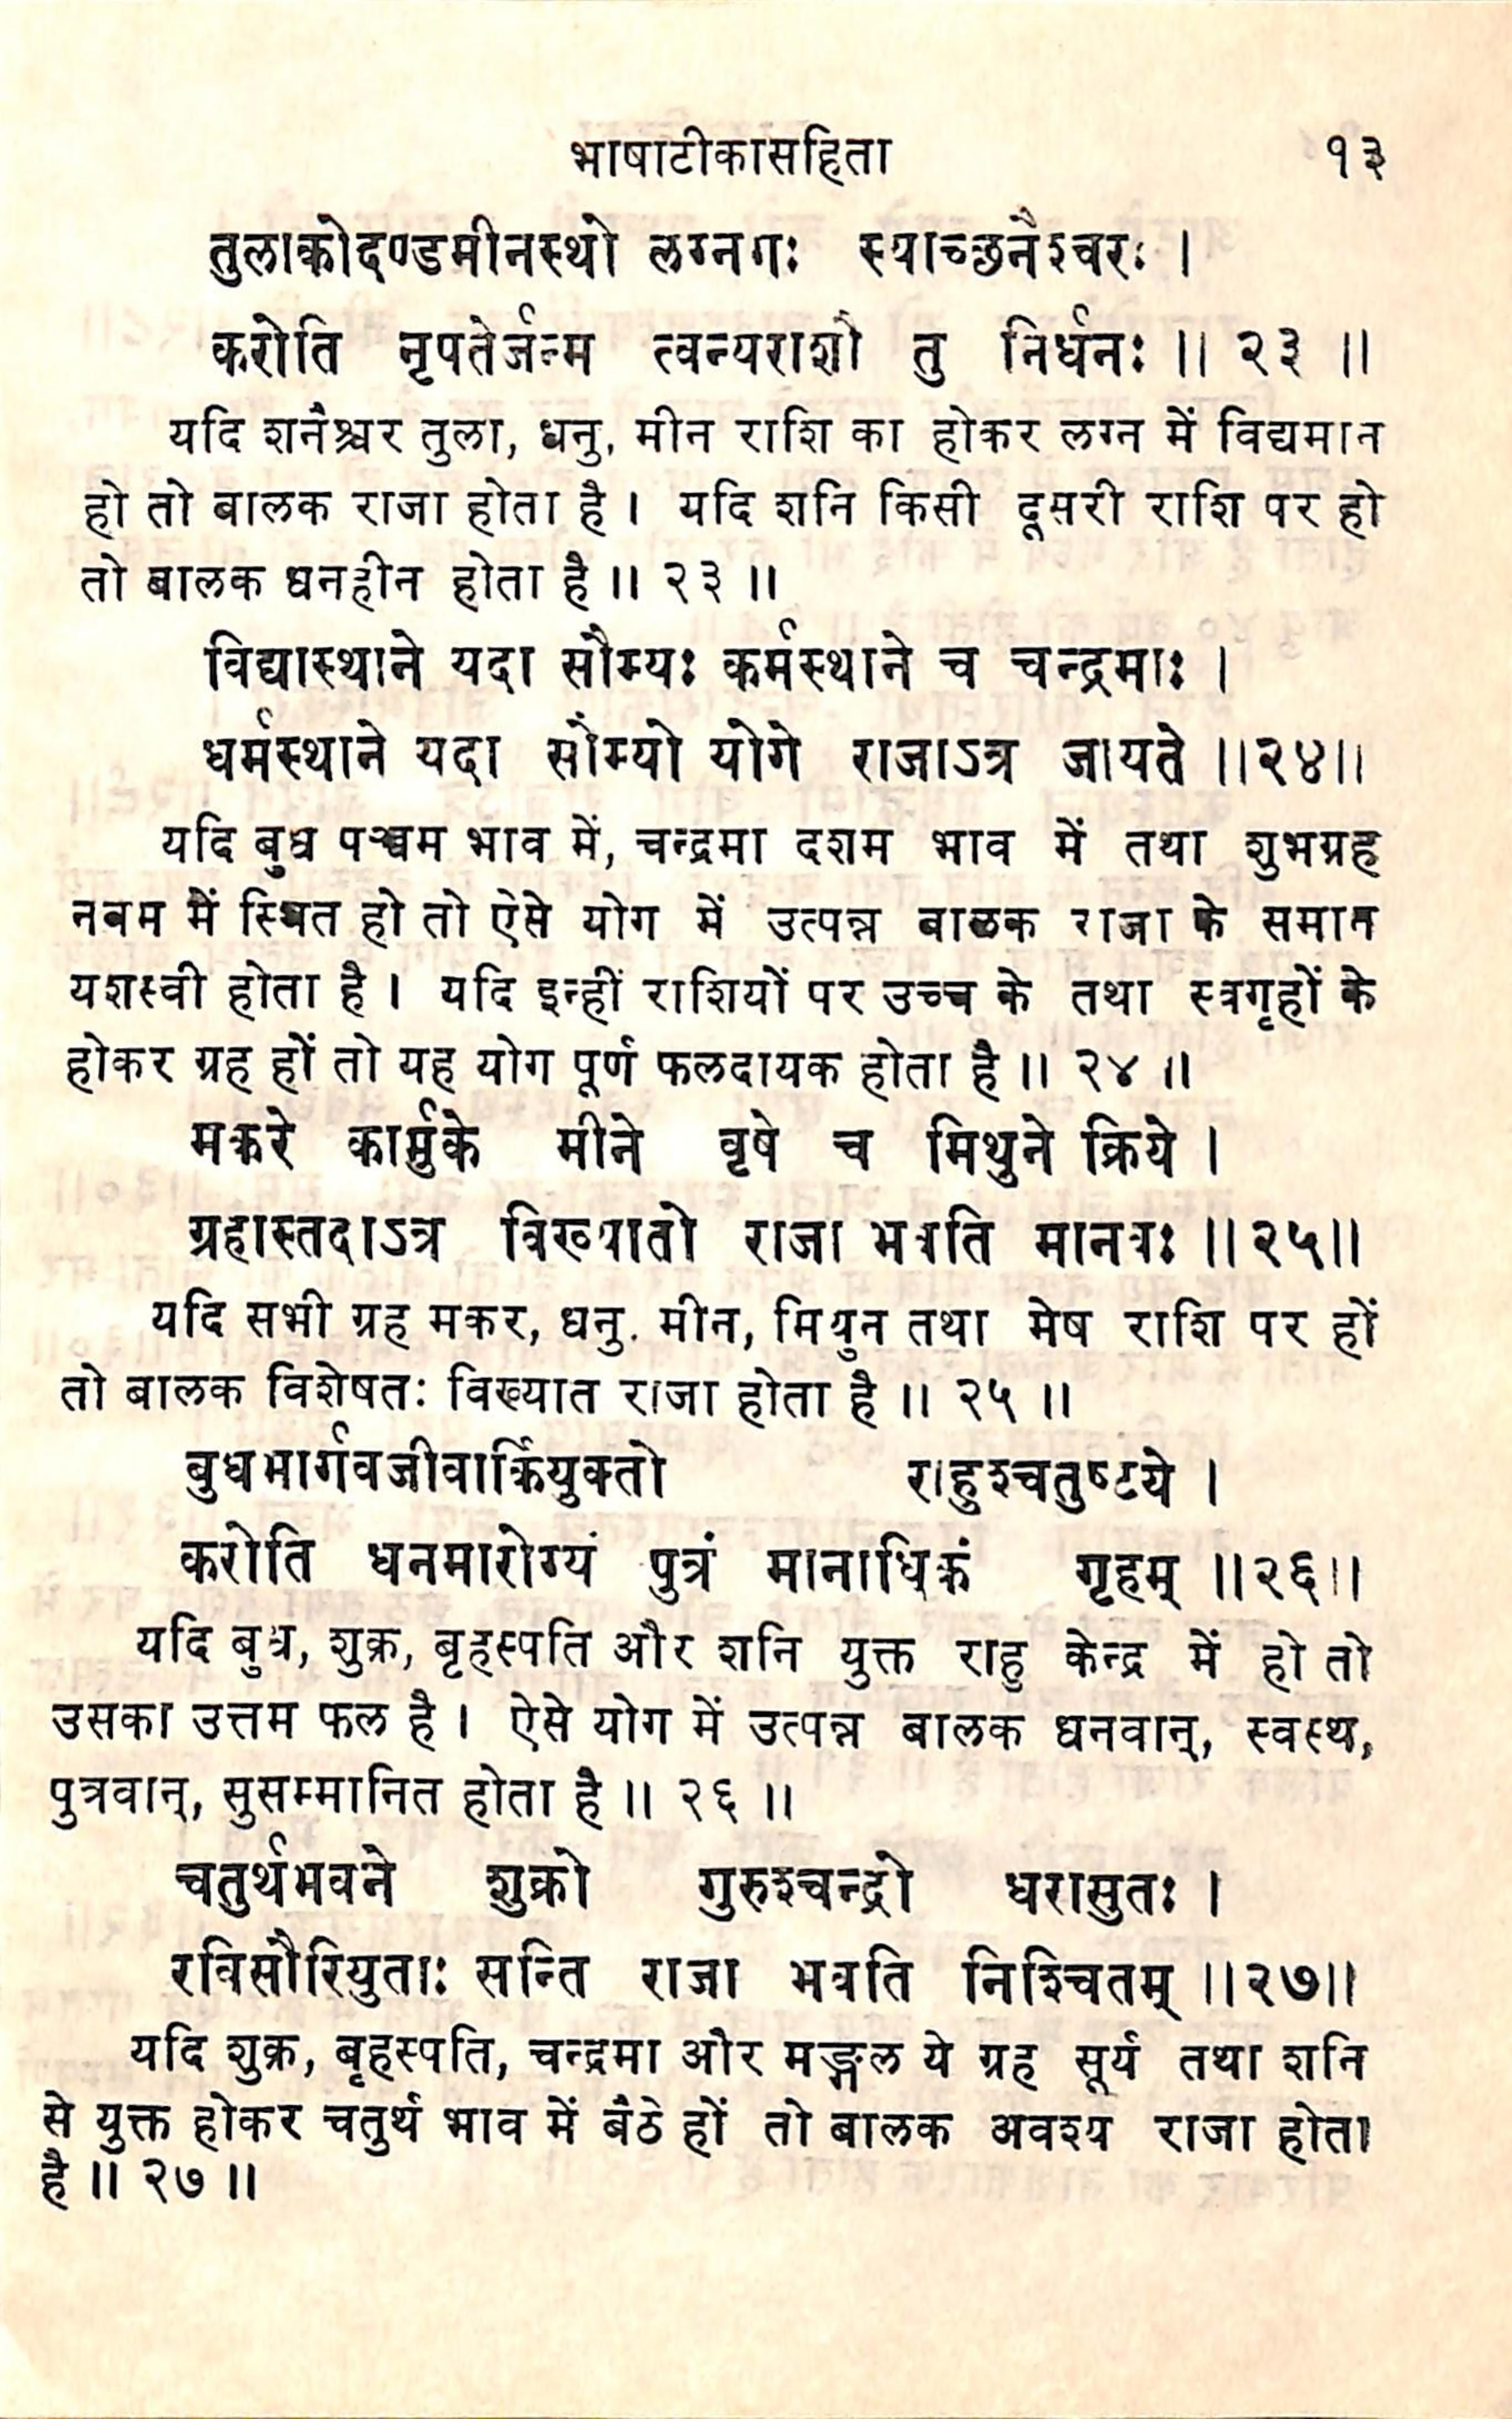 भाषाटीकासहिता १३
तुलाकोदण्डमीनस्थो लग्नगः स्याच्छनैश्चरः ।
करोति नृपतेर्जन्म त्वन्यराशौ तु निर्धनः ॥ २३ ॥
यदि शनैश्चर तुला, धनु, मीन राशि का होकर लग्न में विद्यमान
हो तो बालक राजा होता है । यदि शनि किसी दूसरी राशि पर हो
तो बालक धनहीन होता है ॥ २३ ॥
विद्यास्थाने यदा सौम्यः कर्मस्थाने च चन्द्रमाः ।
धर्मस्थाने यदा सौम्यो योगे राजाऽत्र जायते ॥२४॥
यदि बुध पञ्चम भाव में, चन्द्रमा दशम भाव में तथा शुभग्रह
नवम में स्थित हो तो ऐसे योग में उत्पन्न बालक राजा के समान
यशस्वी होता है । यदि इन्हीं राशियों पर उच्च के तथा स्वगृहों के
होकर ग्रह हों तो यह योग पूर्ण फलदायक होता है ॥ २४ ॥
मकरे कार्मुके मीने वृषे च मिथुने क्रिये ।
ग्रहास्तदाऽत्र विख्यातो राजा भवति मानवः ॥२५॥
यदि सभी ग्रह मकर, धनु. मीन, मिथुन तथा मेष राशि पर हों
तो बालक विशेषतः विख्यात राजा होता है ॥ २५ ॥
बुधभार्गवजीवार्कियुक्तो राहुश्चतुष्टये ।
करोति धनमारोग्यं पुत्रं मानाधिकं गृहम् ॥२६॥
यदि बुध, शुक्र, बृहस्पति और शनि युक्त राहु केन्द्र में हो तो
उसका उत्तम फल है । ऐसे योग में उत्पन्न बालक धनवान्, स्वस्थ,
पुत्रवान्, सुसम्मानित होता है ॥ २६ ॥
चतुर्थभवने शुक्रो गुरुश्चन्द्रो धरासुतः ।
रविसौरियुताः सन्ति राजा भवति निश्चितम् ॥२७॥
यदि शुक्र, बृहस्पति, चन्द्रमा और मङ्गल ये ग्रह सूर्य तथा शनि
से युक्त होकर चतुर्थ भाव में बैठे हों तो बालक अवश्य राजा होता
है ॥ २७ ॥